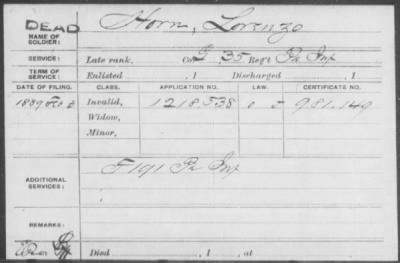 DEAD
NAME OF SOLDIER: Horn, Lorenzo
SERVICE: Late rank, Co. 35 Reg't Pa Inf
TERM OF SERVICE: Enlisted , 1 Discharged , 1
DATE OF FILING. CLASS. APPLICATION NO. LAW. CERTIFICATE NO.
Invalid, 1218.538 981.149
Widow,
Minor,
ADDITIONAL SERVICES: F 191 Pa Inf
REMARKS:
Died , 1 , at